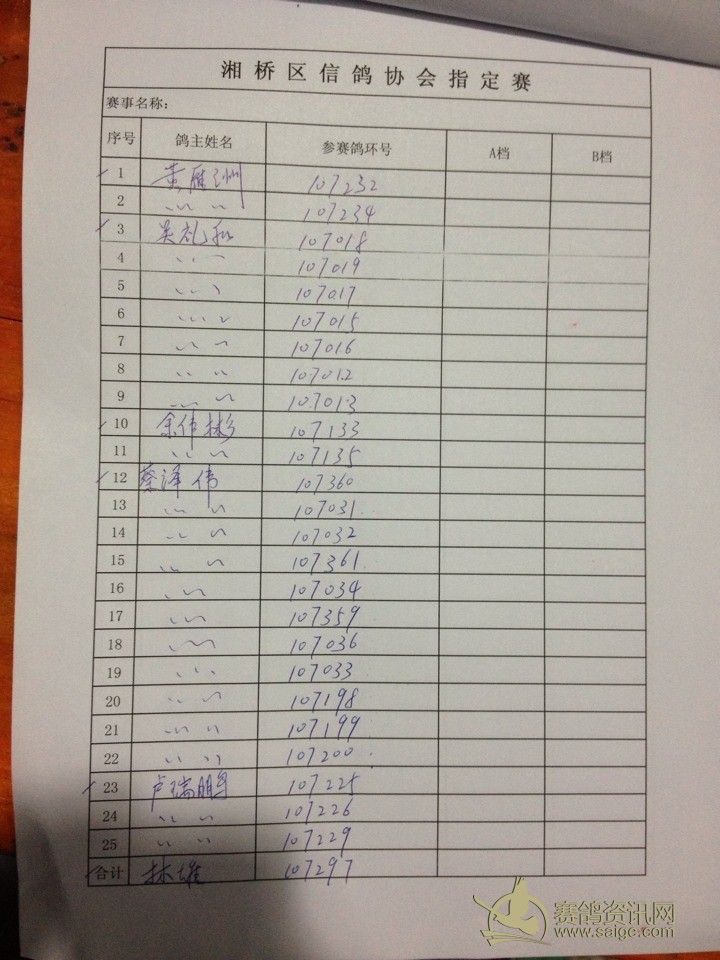 湘桥区信鸽协会指定赛
赛事名称：
序号 鸽主姓名 参赛鸽环号 A档 B档
1 黄雁洲 107232
2 〃 〃 107234
3 吴礼和 107018
4 〃 〃 107019
5 〃 〃 107017
6 〃 〃 107015
7 〃 〃 107016
8 〃 〃 107012
9 〃 〃 107013
10 余伟彬 107133
11 〃 〃 107135
12 蔡泽伟 107360
13 〃 〃 107031
14 〃 〃 107032
15 〃 〃 107361
16 〃 〃 107034
17 〃 〃 107359
18 〃 〃 107036
19 〃 〃 107033
20 〃 〃 107198
21 〃 〃 107199
22 〃 〃 107200
23 卢瑞鹏 107225
24 〃 〃 107226
25 〃 〃 107229
合计 林雄 107297
赛鸽资讯网
www.saige.com